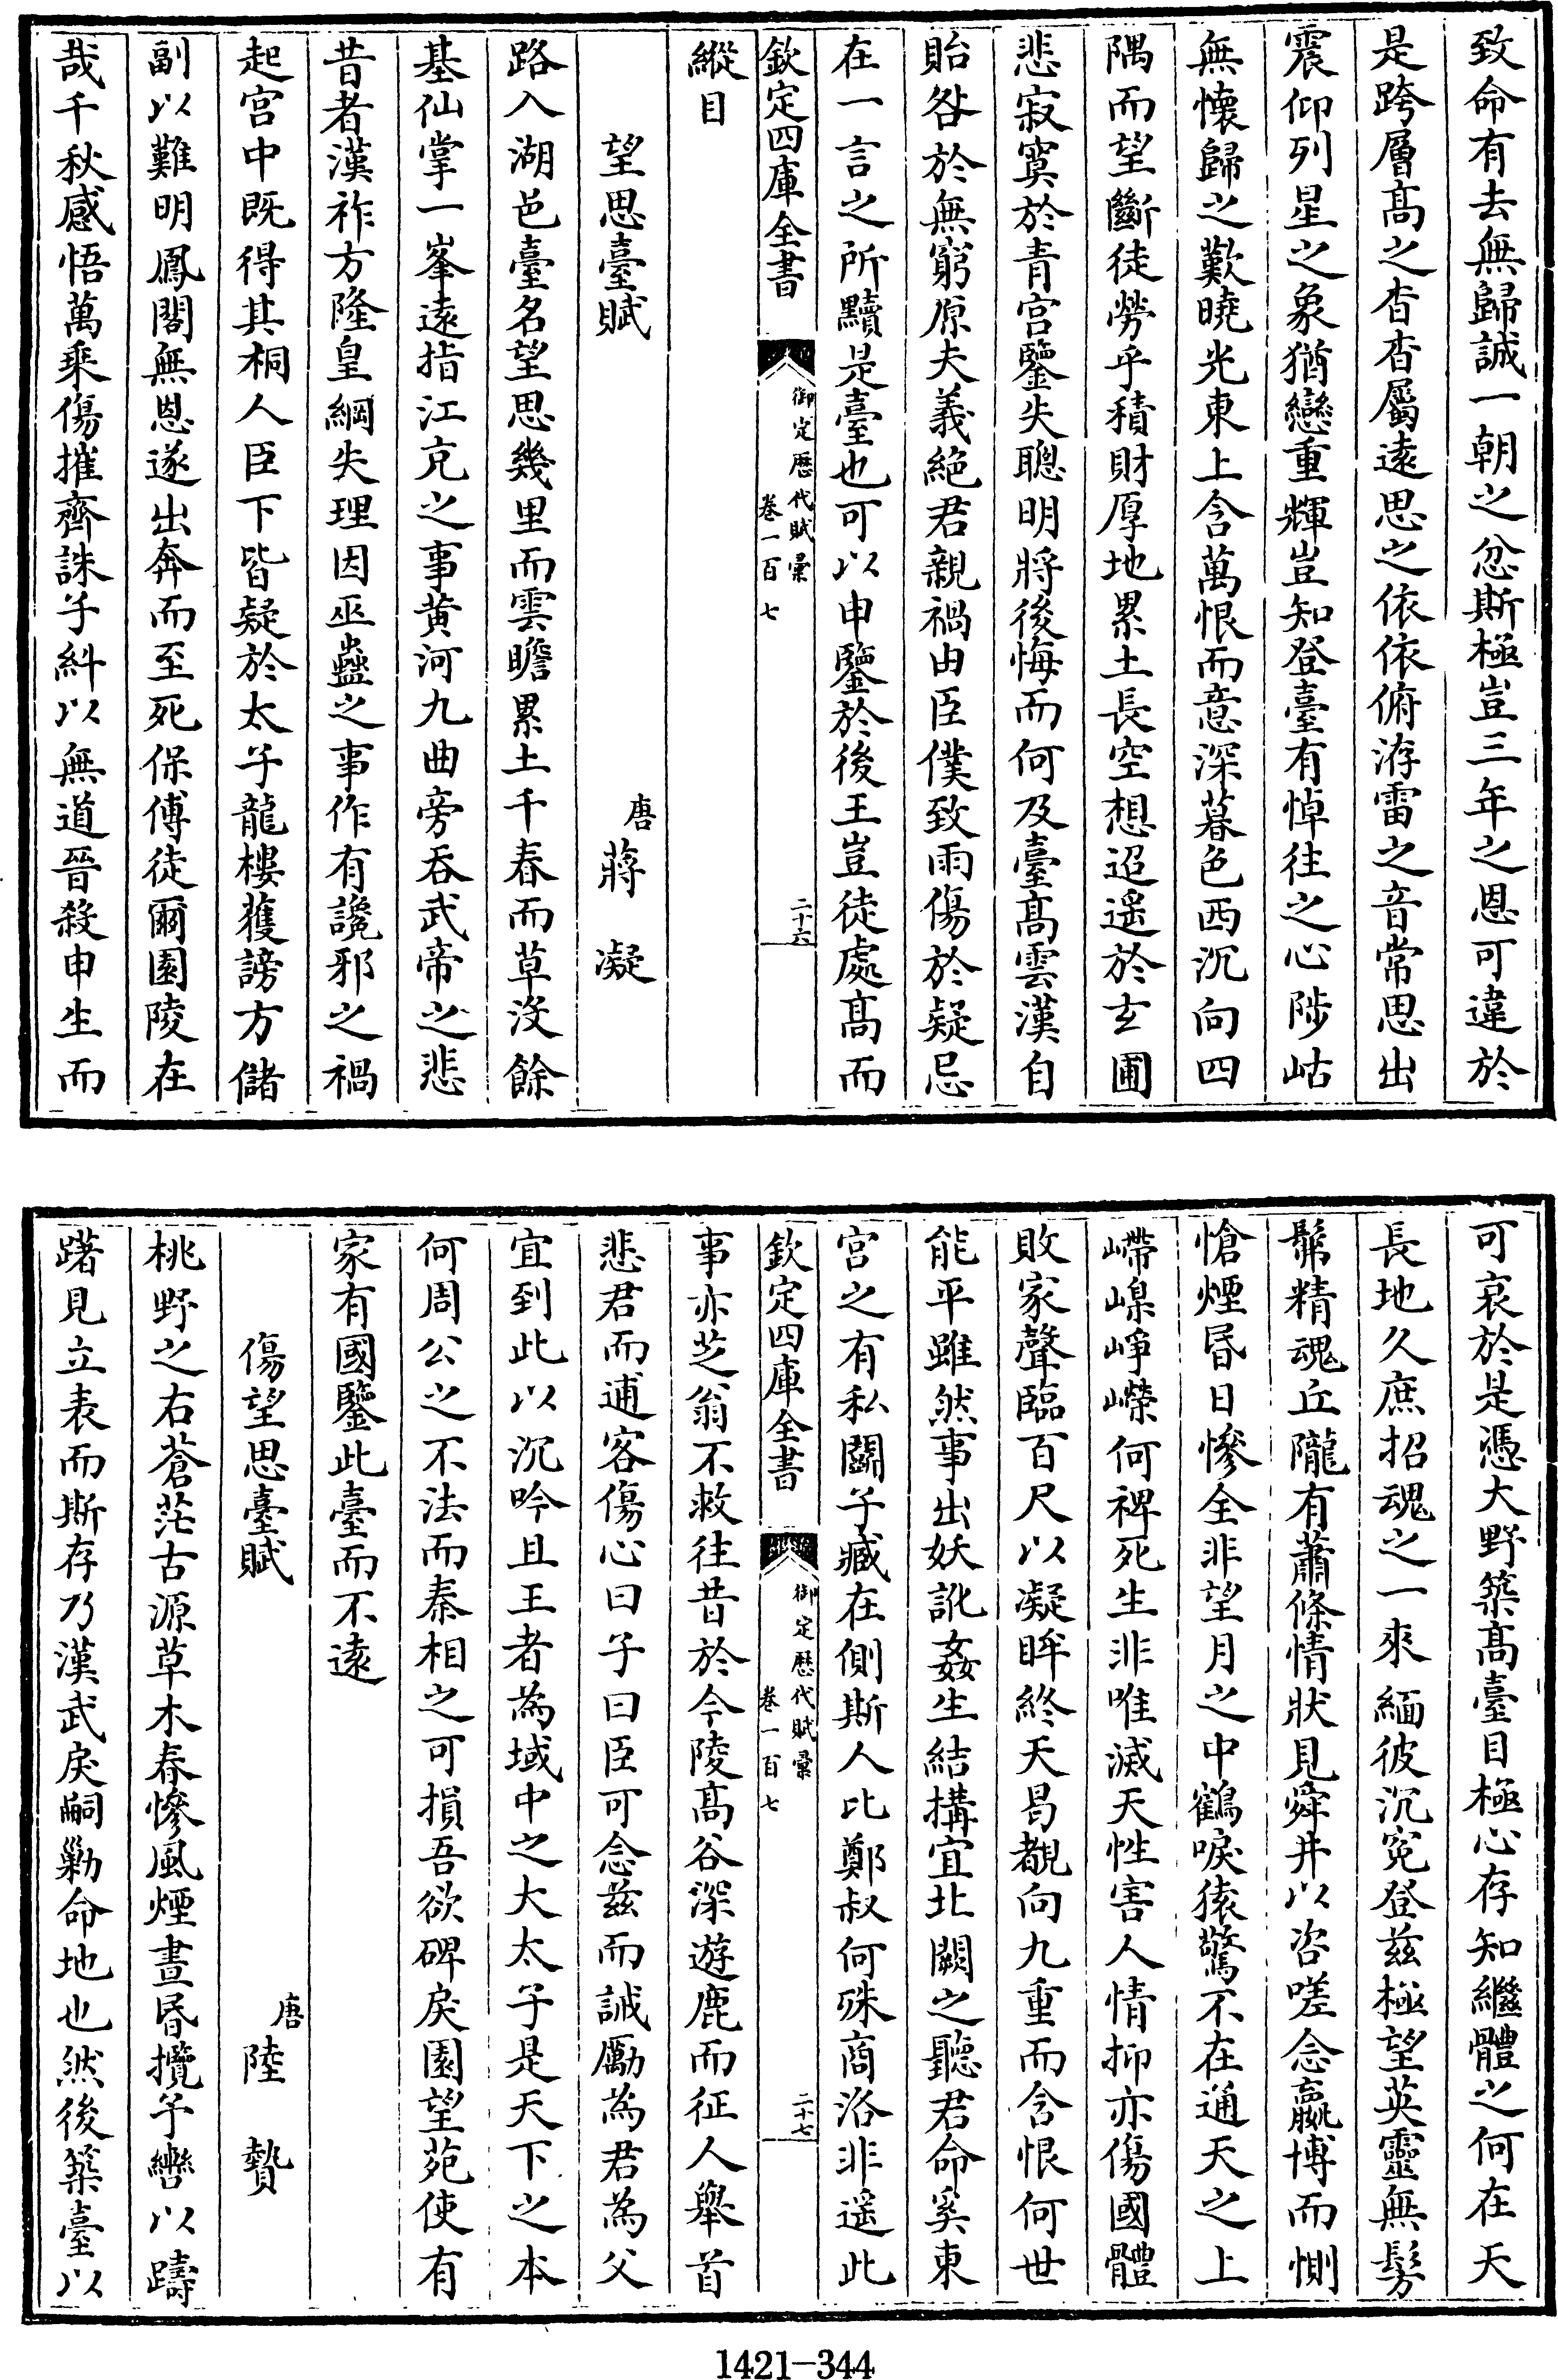 致命有去無歸誠一朝之忿斯極豈三年之恩可違於
是跨層髙之杳杳屬遠思之依依俯洊雷之音常思出
震仰列星之象猶戀重輝豈知登臺有悼往之心陟岵
無懷歸之歎曉光東上含萬恨而意深暮色西沉向四
隅而望斷徒勞乎積財厚地累土長空想迢遥於玄圃
悲寂寞於青宫鑒失聰明將後悔而何及臺髙雲漢自
貽咎於無窮原夫義絶君親禍由臣僕致雨傷於疑忌
在一言之所黷是臺也可以申鑒於後王豈徒處髙而
欽定四庫全書
御定歴代賦彚
卷一百七
二十六
縱目
望思臺賦
唐蔣凝
路入湖邑臺名望思幾里而雲瞻累土千春而草沒餘
基仙掌一峯遠指江充之事黄河九曲旁吞武帝之悲
昔者漢祚方隆皇綱失理因巫蠱之事作有讒邪之禍
起宫中既得其桐人臣下皆疑於太子龍樓獲謗方儲
副以難明鳳閣無恩遂出奔而至死保傅徒爾園陵在
哉千秋感悟萬乘傷摧齊誅子糾以無道晉殺申生而
可哀於是憑大野築髙臺目極心存知繼體之何在天
長地久庶招魂之一來緬彼沉寃登兹極望英靈無髣
髴精魂丘隴有蕭條情狀見舜井以咨嗟念嬴博而惻
愴煙昏日慘全非望月之中鶴唳猿驚不在通天之上
嵽嵲崢嶸何裨死生非唯滅天性害人情抑亦傷國體
敗家聲臨百尺以凝眸終天曷覩向九重而含恨何世
能平雖然事出妖訛姦生結搆宜北闕之聽君命奚東
宫之有私鬬子臧在側斯人比鄭叔何殊商洛非遥此
欽定四庫全書
御定歴代賦彚
卷一百七
二十七
事亦芝翁不救往昔於今陵髙谷深遊鹿而征人舉首
悲君而逋客傷心曰子曰臣可念兹而誡勵為君為父
宜到此以沉吟且王者為域中之大太子是天下之本
何周公之不法而秦相之可損吾欲碑戾園望苑使有
家有國鑒此臺而不遠
傷望思臺賦
唐陸贄
桃野之右蒼茫古源草木春慘風煙晝昏攬予轡以躊
躇見立表而斯存乃漢武戾嗣勦命地也然後築臺以
1421-344